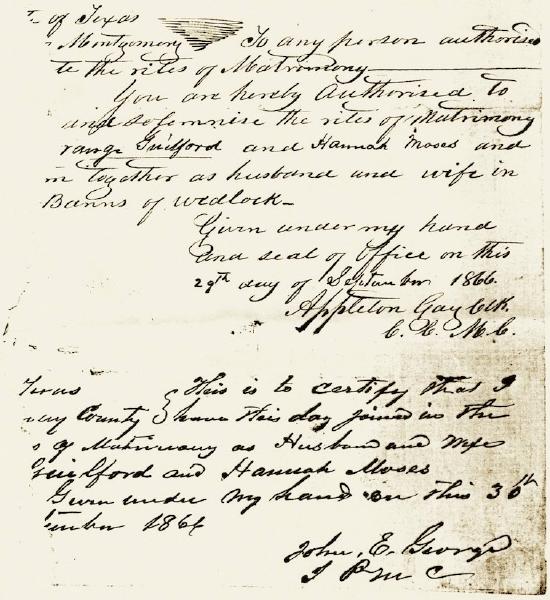 of Texas
Montgomery To any person authorised
te the rites of Matrimony
You are hereby Authorised to
and solemnise the rites of Matrimony
range Guilford and Hannah Moses and
m together as husband and wife in
Banns of wedlock-
Given under my hand
and seal of Office on this
29th day of September 1866
Appleton Gay Clk.
C. C. M. C.
Texas
County This is to certify that I
have this day joined in the
s of Matrimony as Husband and wife
Guilford and Hannah Moses
Given under my hand on this 30th
tember 1866
John. E. George
J P M C